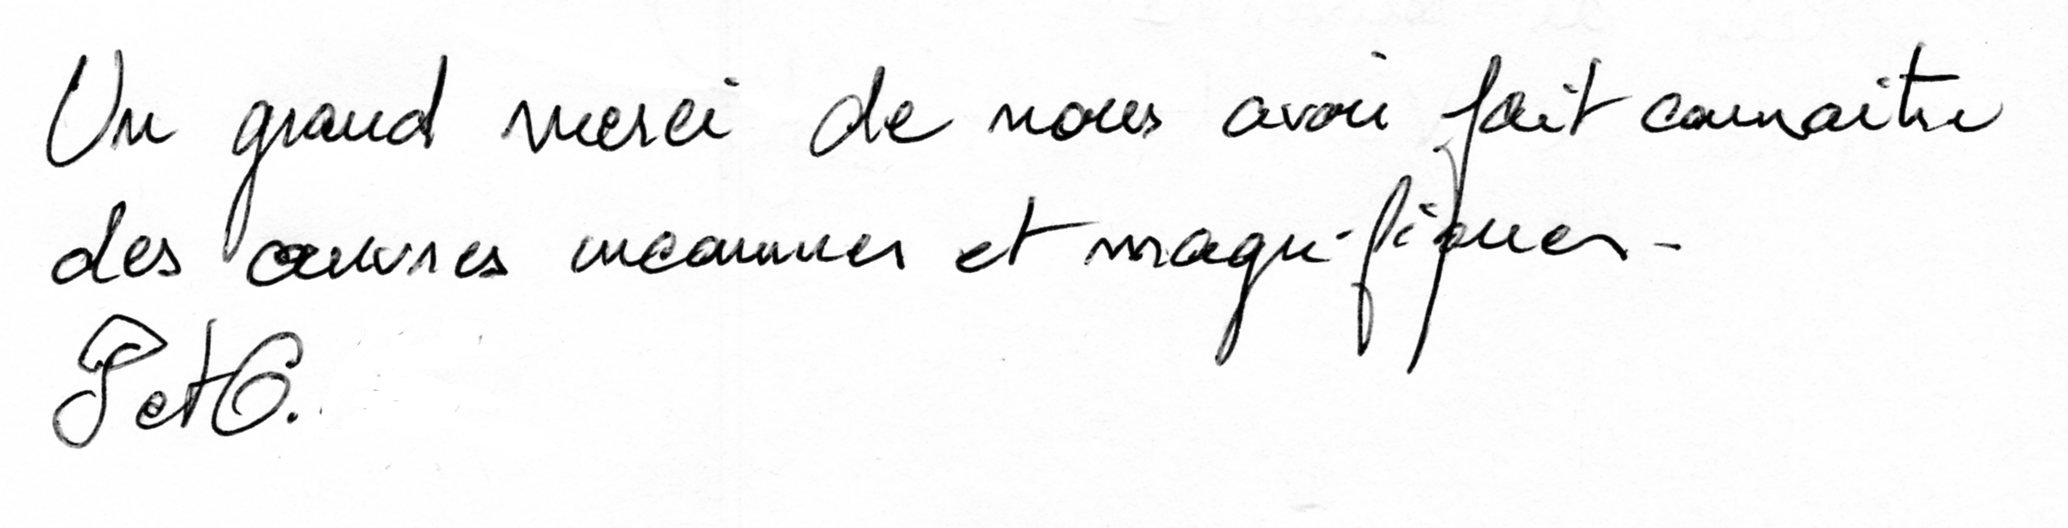 Un grand merci de nous avoir fait connaitre
des œuvres inconnues et magnifiques -
J et C.